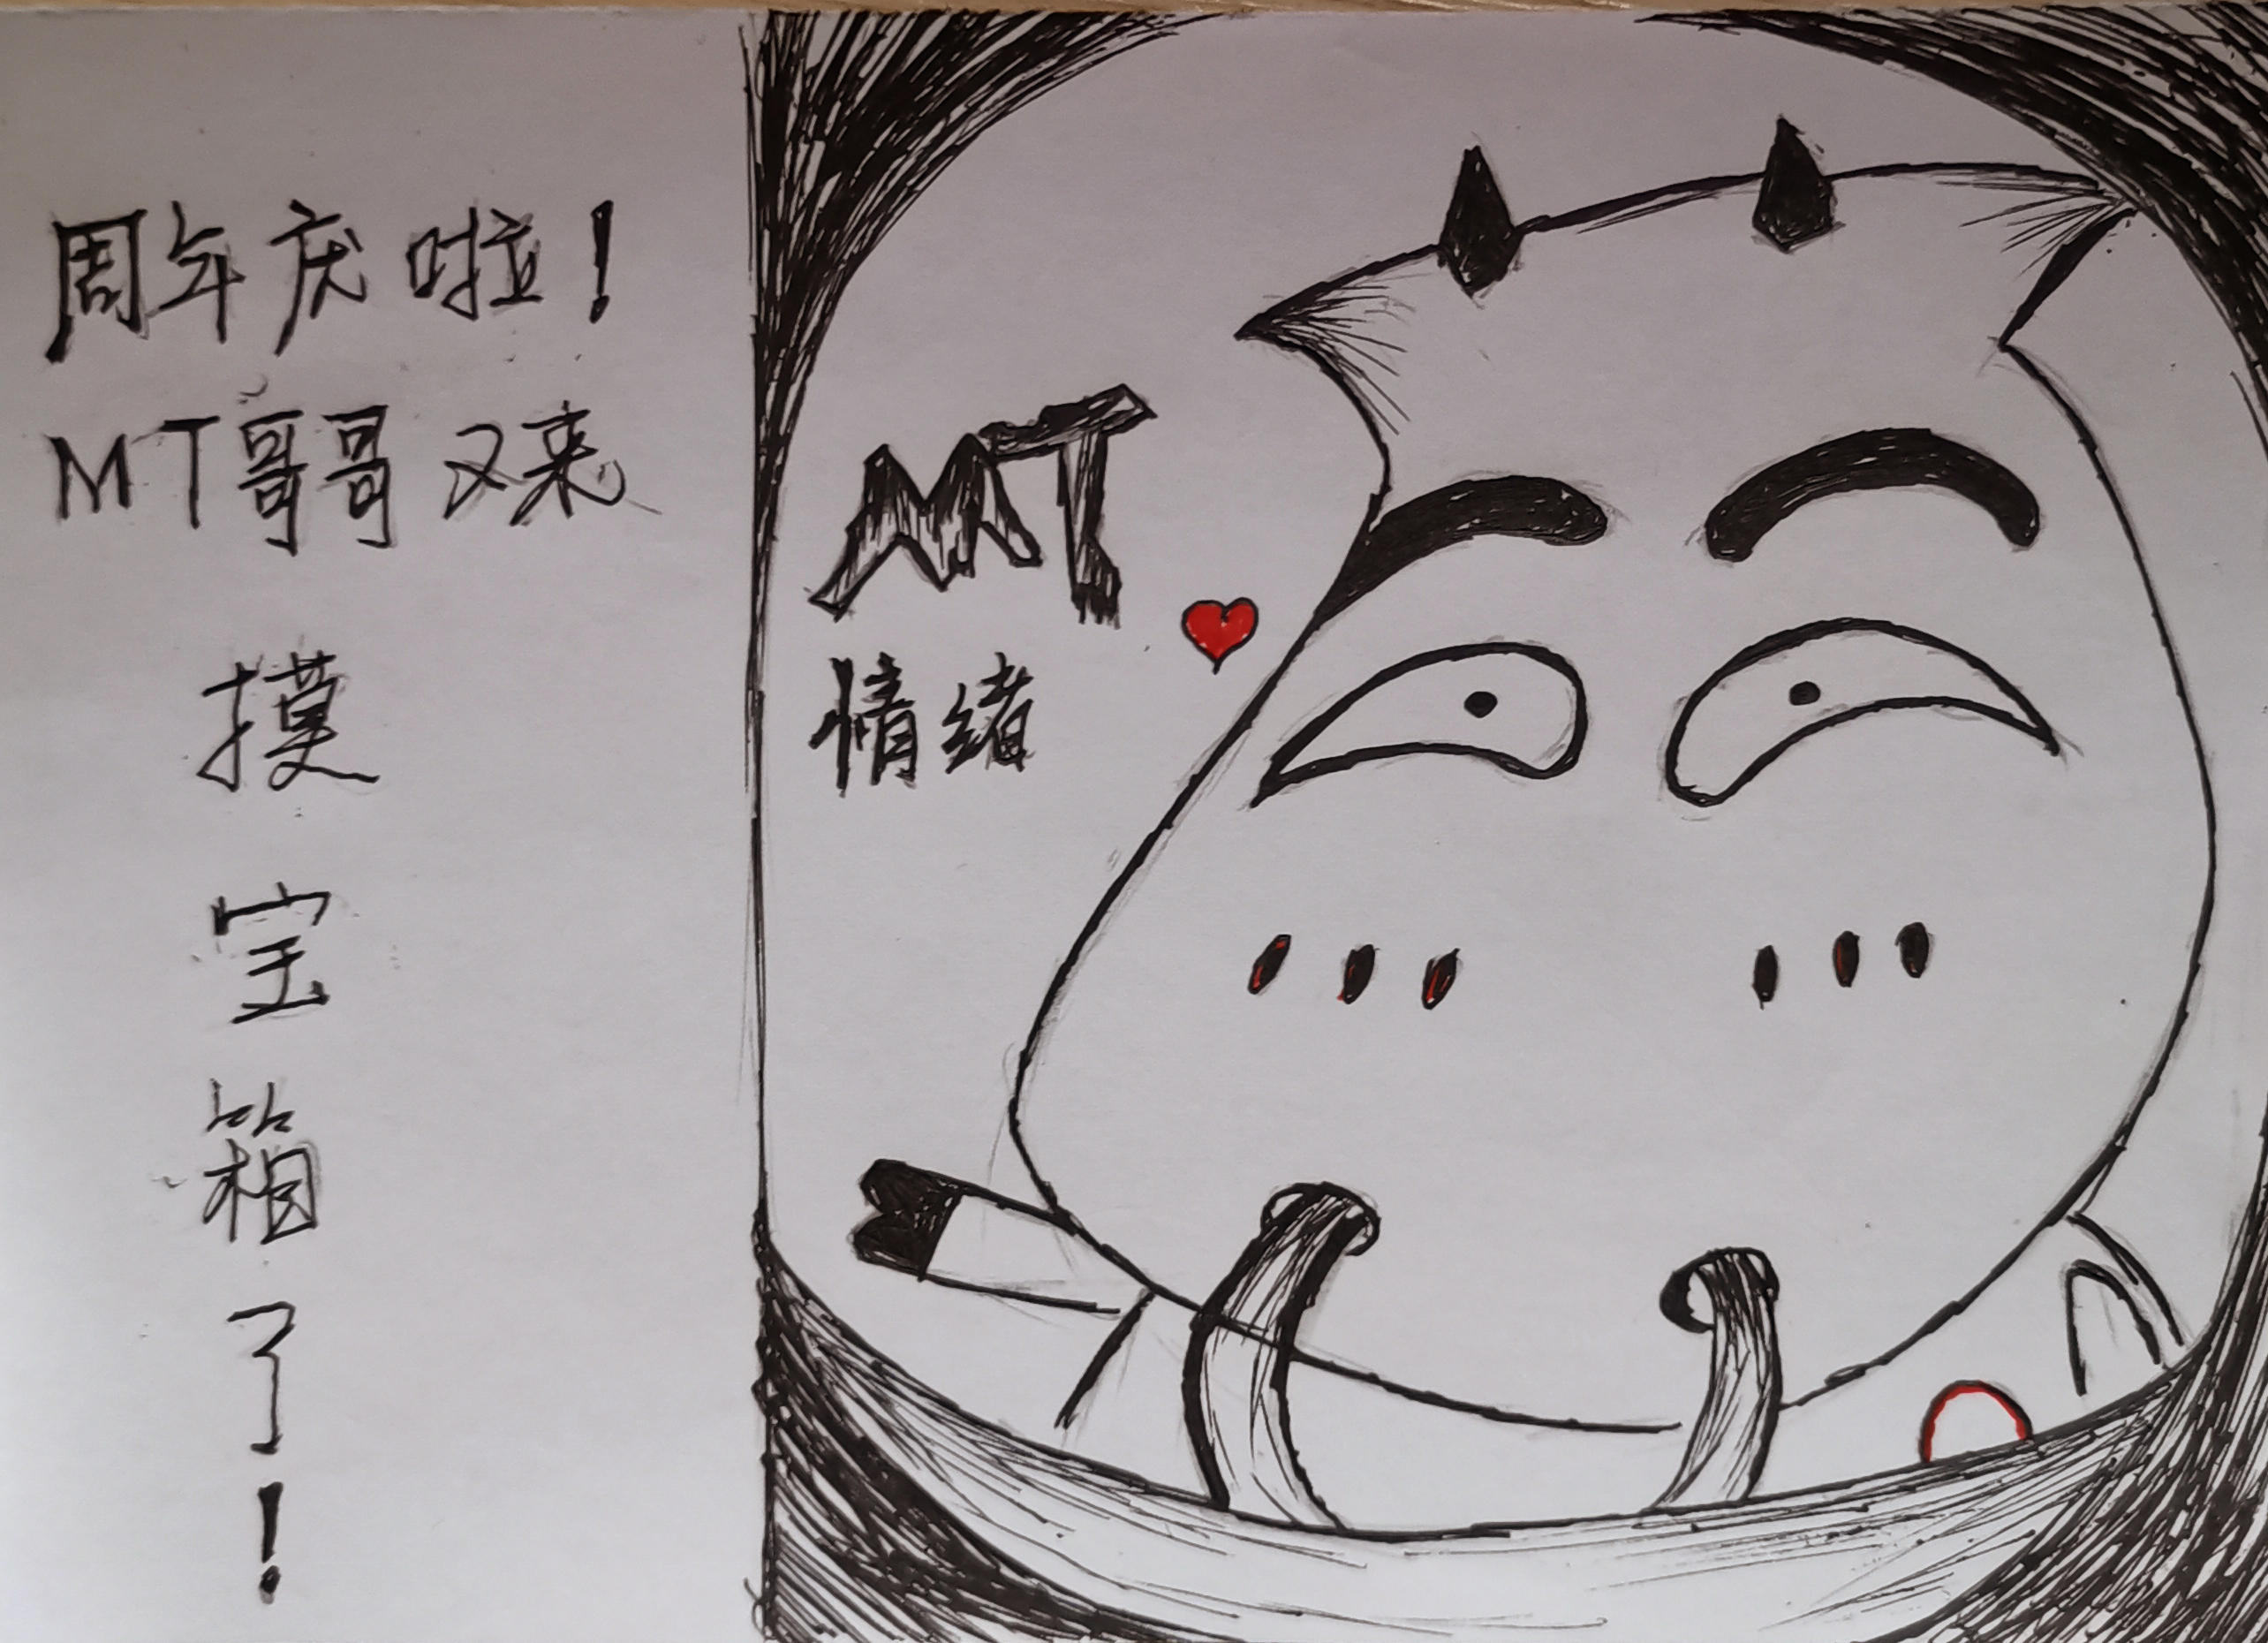 周年庆啦！
MT哥哥又来
摸
宝
箱
了！
MT
情绪